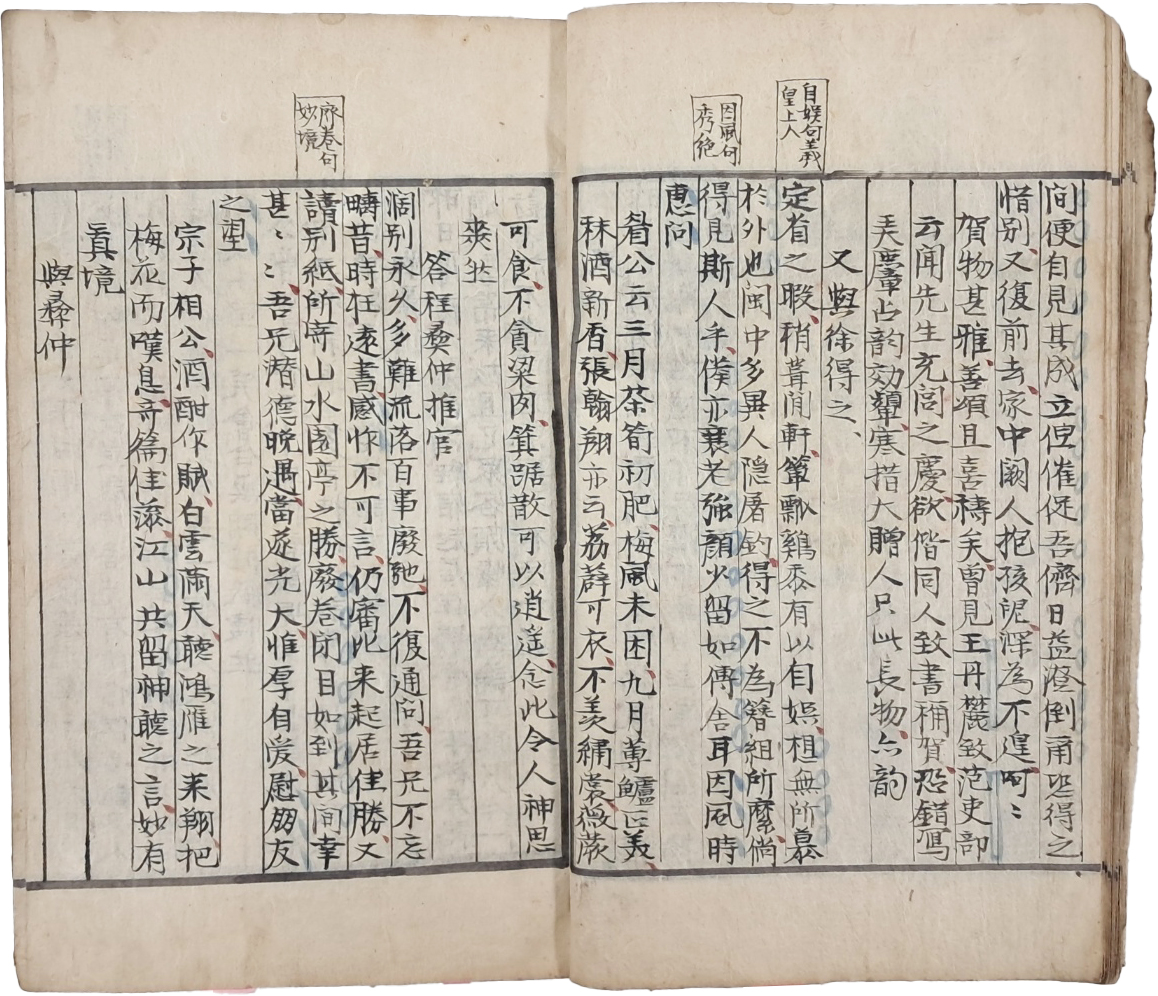 自娱句義
皇上人
因風句
秀絶
間便自見其成立倥催促吾儕日益潦倒甭坐得之
惜别又復前去家中闕人抱孩詑深為不遑呵〻
賀物甚雅善頌且喜禱矣曾見王丹麓致范吏部
云聞先生充閭之慶欲偕同人致書稱賀恐錯寫
美麞占韵効颦寒措大贈人只此長物亦韵
又與徐得之
定省之暇稍葺閒軒簞瓢鷄黍有以自娯想無所慕
於外也閩中多異人隐屠釣得之不為簪組所縻倘
得見斯人乎僕亦衰老強顔少留如傳舍耳因風時
恵問
眉公云三月茶筍初肥梅風未困九月蓴鱸正美
秫酒新香張翰翔亦云荔薜可衣不羡綉裳薇蕨
序卷句
妙境
可食不貪梁肉箕踞散可以逍遥念此令人神思
爽然
答程彝仲推官
濶别永久多難流落百事廢弛不復通问吾兄不忘
疇昔時枉遠書感怍不可言仍審比来起居佳勝又
請别紙所寄山水園亭之勝廢卷閉目如到其间幸
甚〻吾兄潜德晚遇當遂光大惟厚自愛慰朋友
之望
宗子相公酒酣作賦白雲滿天聽鴻雁之来翔把
梅花而嘆息奇篇佳滚江山共留神聽之言妙有
真境
與彝仲